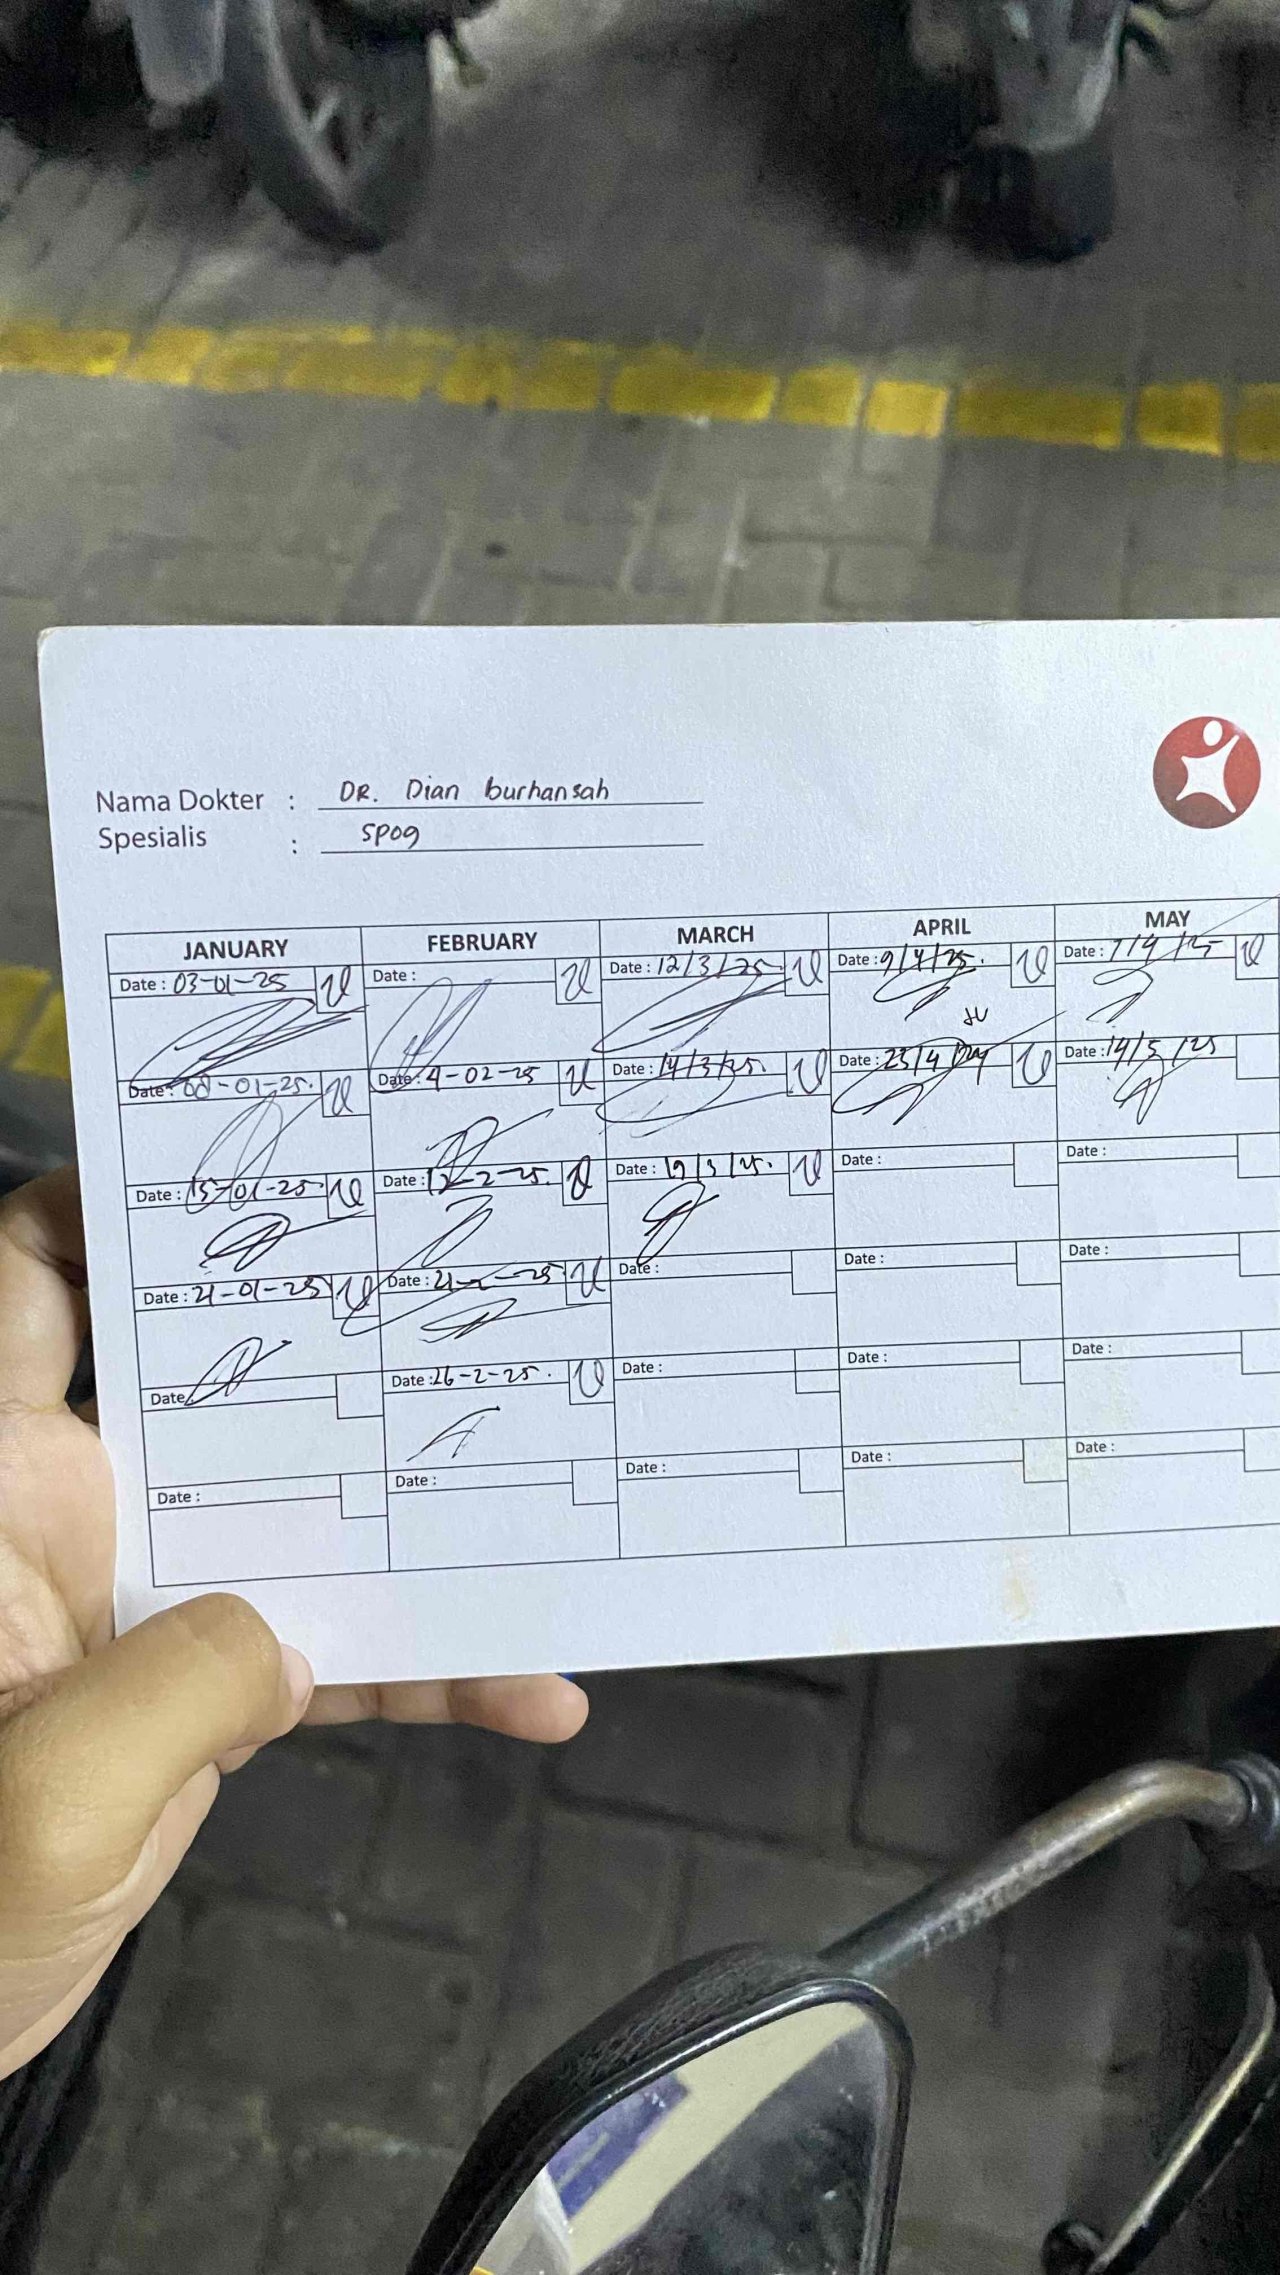 Nama Dokter : DR. Dian burhansah
Spesialis : SPOG
JANUARY FEBRUARY MARCH APRIL MAY
Date : 03-01-25 Date : Date : 12/3/25. Date : 9/4/25. Date :
Date : 08-01-25. Date : 4-02-25 Date : 14/3/25. Date : 23/4/ Date : 14/5/25
Date : 15-01-25. Date : 12-2-25. Date : 19/3/25. Date : Date :
Date : 21-01-25 Date : 21-2-25. Date : Date : Date :
Date Date : 26-2-25. Date : Date : Date :
Date : Date : Date : Date : Date :